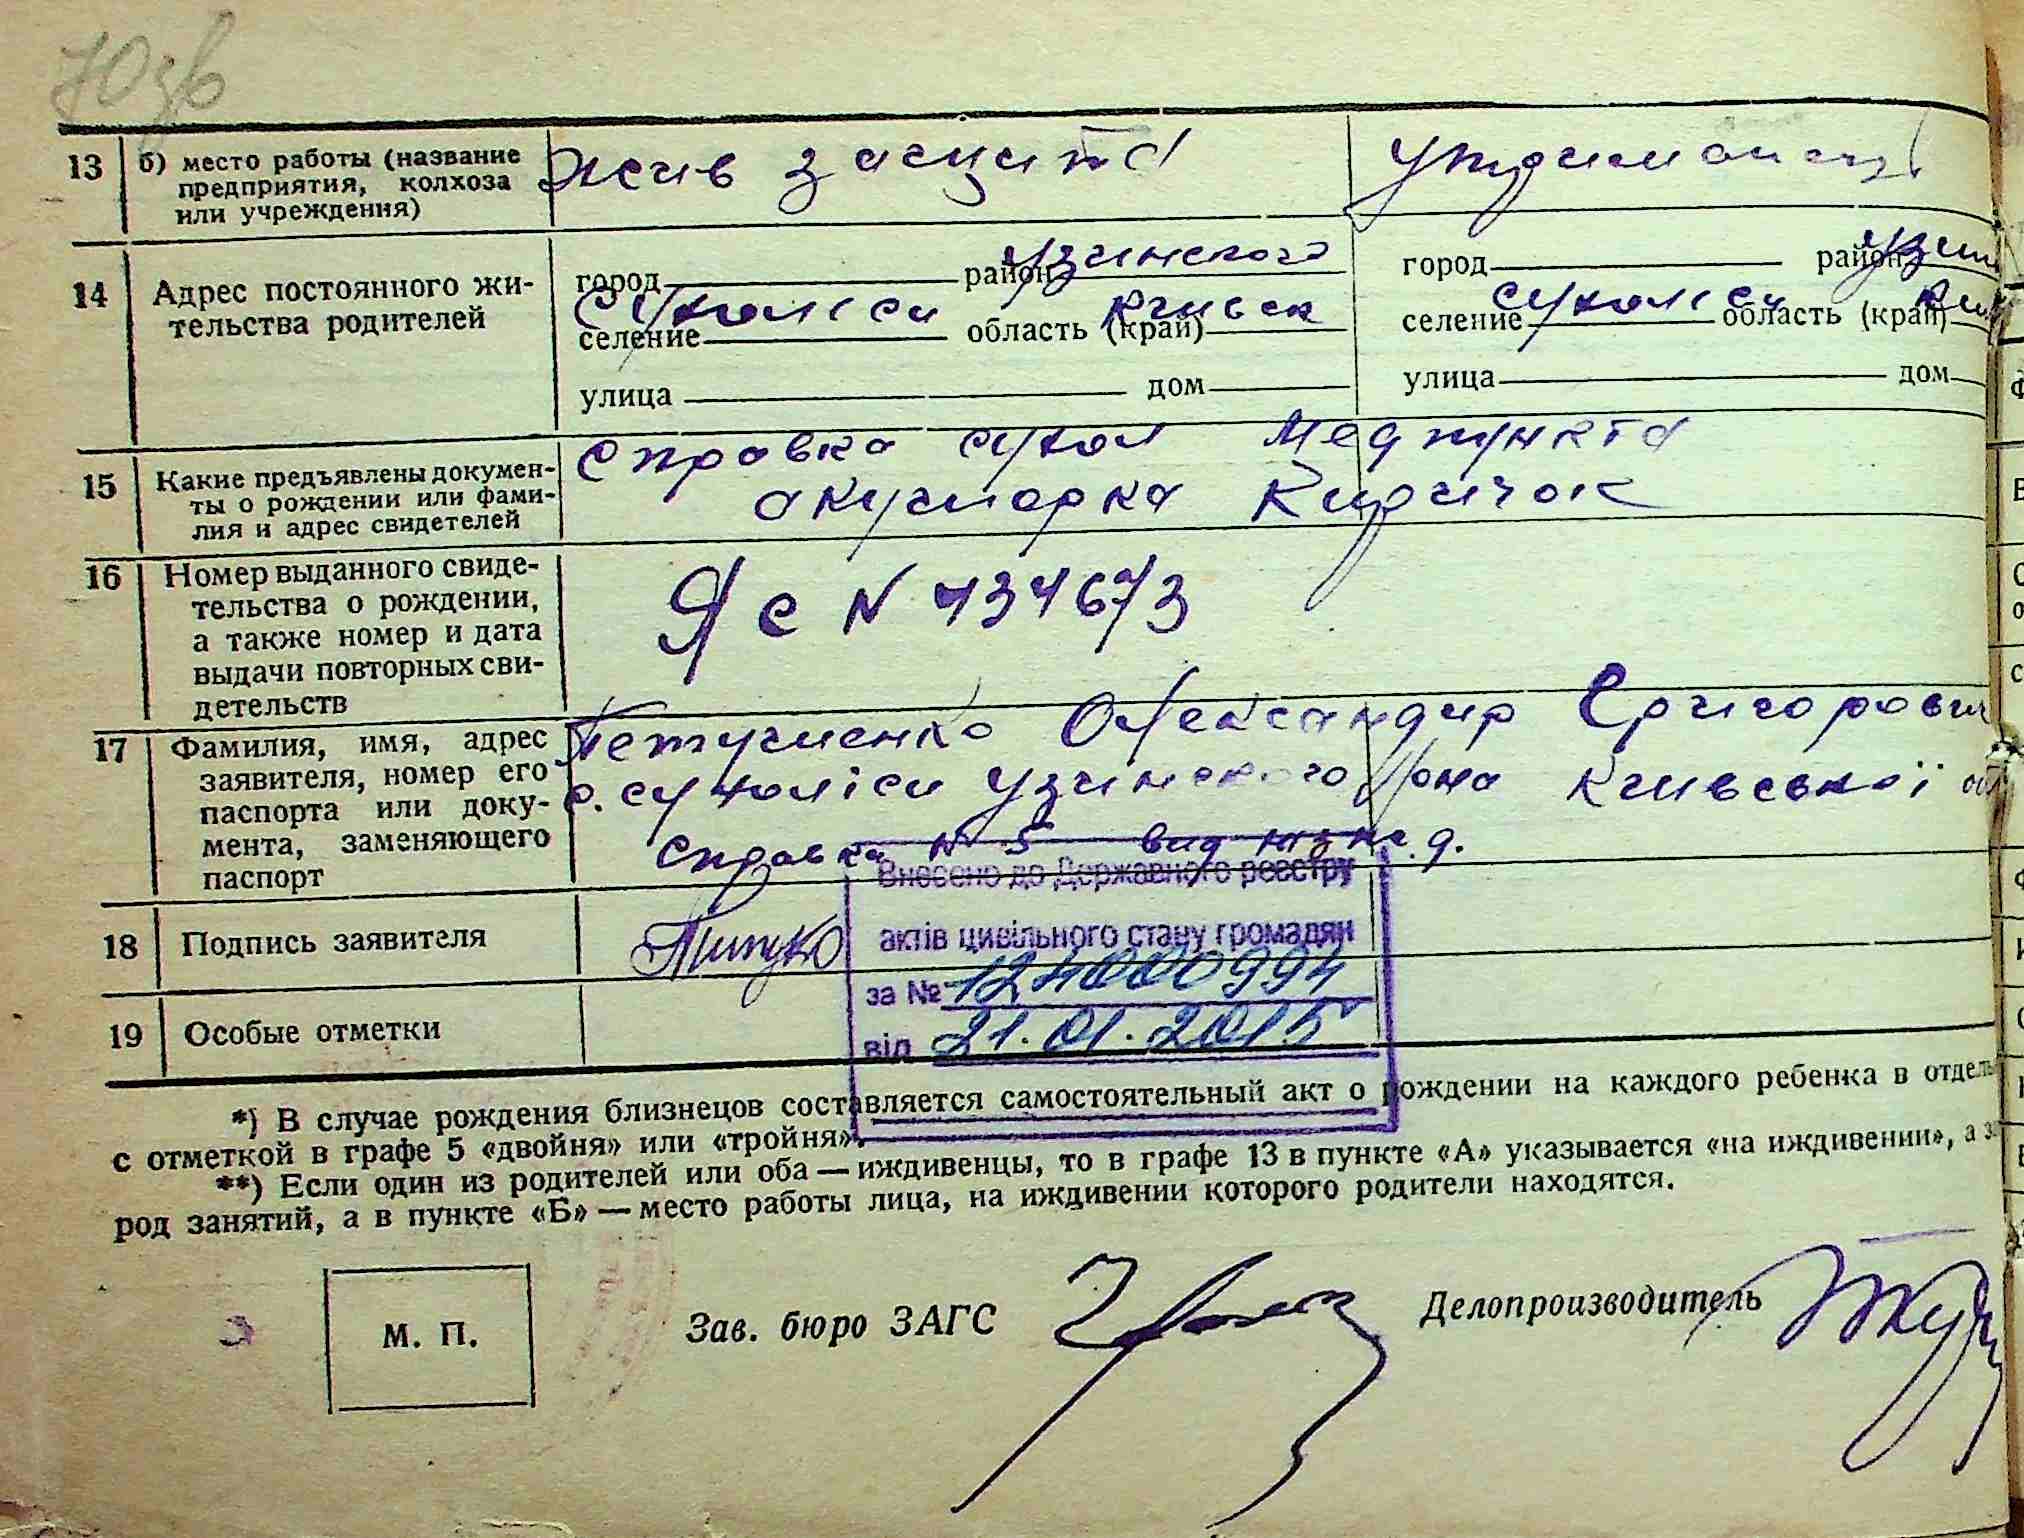 70зв
13 б) место работы (название
предприятия, колхоза
или учреждения)
утриманец
14 Адрес постоянного жи-
тельства родителей
город район Узинского
селение Сухоліси область (край) Київськ
улица дом
город район Узин
селение Сухоліси область (край) Киї
улица дом
15 Какие предъявлены докумен-
ты о рождении или фами-
лия и адрес свидетелей
Справка сухол Медпункта
акушорка Киричок
16 Номер выданного свиде-
тельства о рождении,
а также номер и дата
выдачи повторных сви-
детельств
ЯС N 434673
17 Фамилия, имя, адрес
заявителя, номер его
паспорта или доку-
мента, заменяющего
паспорт
Олександир Григорович
с. Сухоліси Узинского р/она Київської обл
Справка N 5 вид
18 Подпись заявителя
19 Особые отметки
Внесено до Державного реєстру
актів цивільного стану громадян
за № 124000994
від 21.01.2015
*) В случае рождения близнецов составляется самостоятельный акт о рождении на каждого ребенка в отдель
с отметкой в графе 5 «двойня» или «тройня».
**) Если один из родителей или оба — иждивенцы, то в графе 13 в пункте «А» указывается «на иждивении», а з
род занятий, а в пункте «Б» — место работы лица, на иждивении которого родители находятся.
М. П.
Зав. бюро ЗАГС
Делопроизводитель